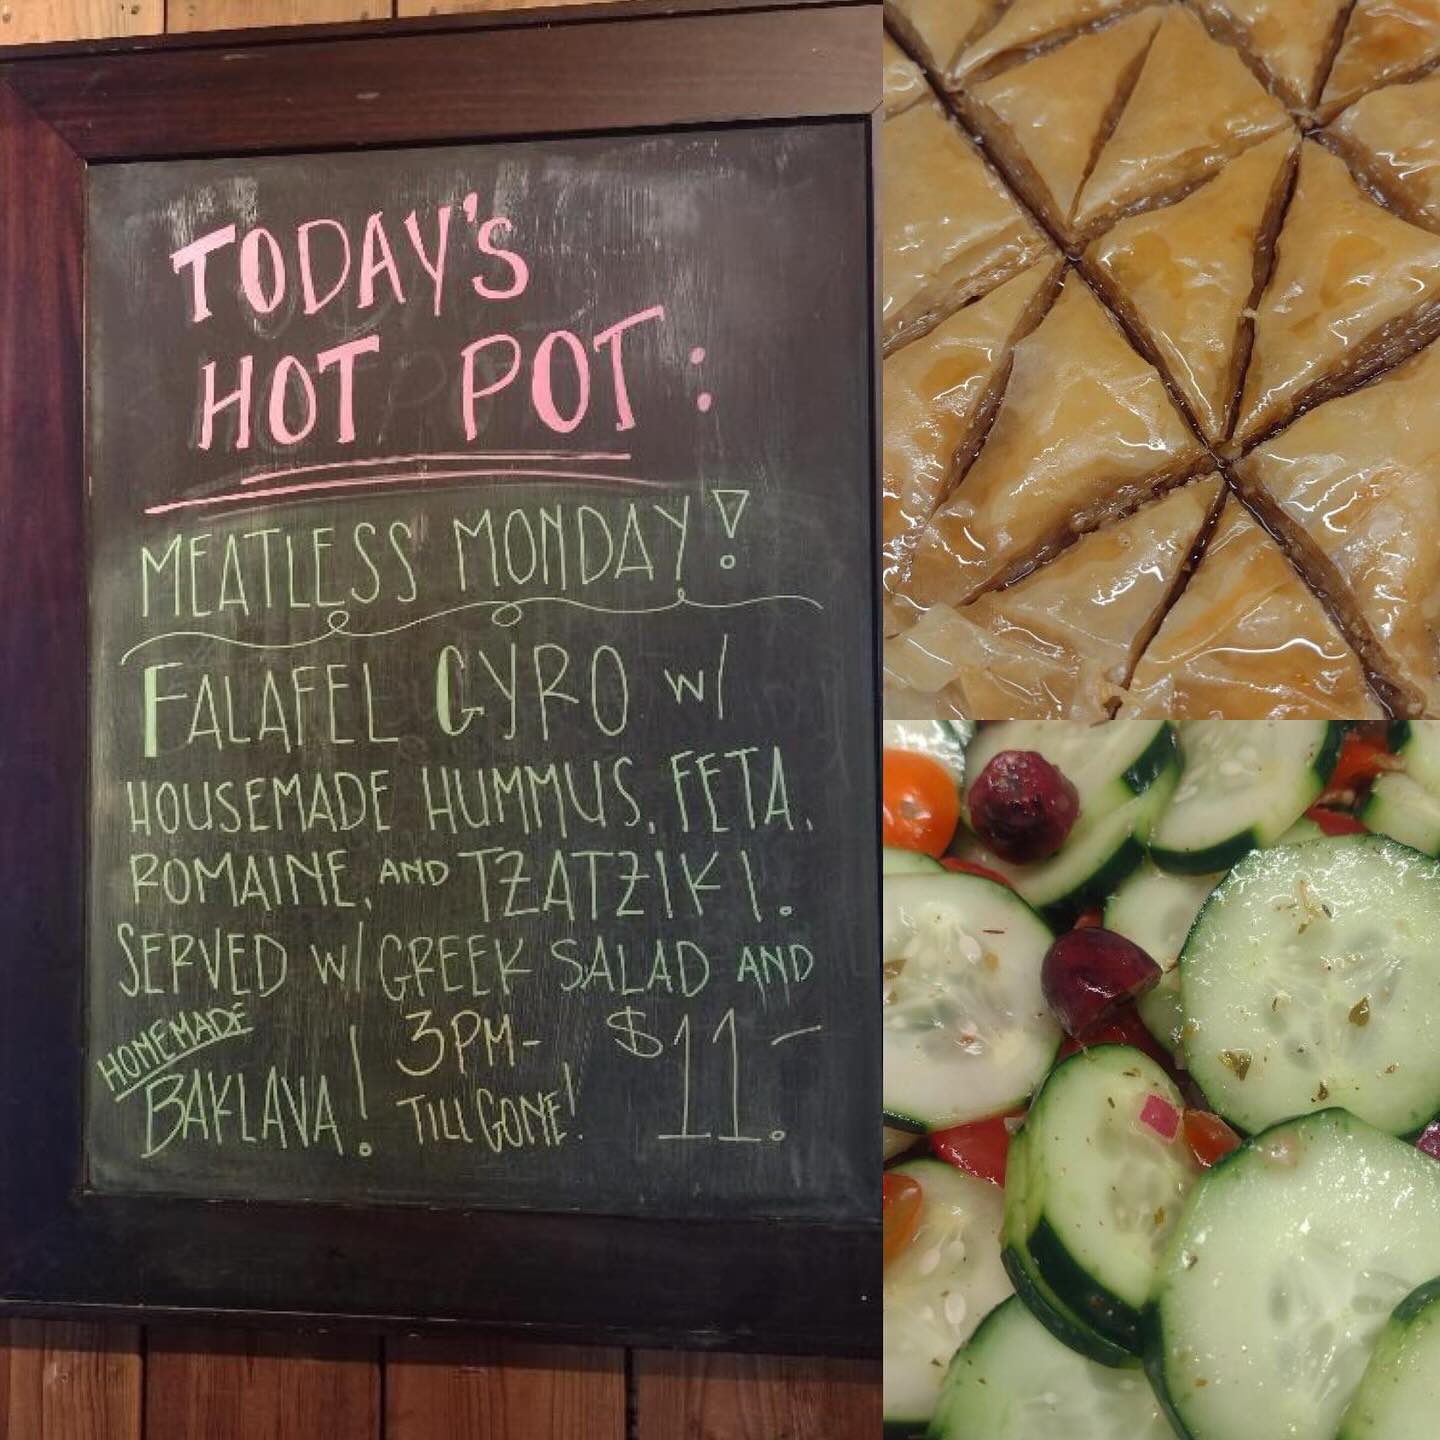 TODAY'S
HOT POT:
MEATLESS MONDAY!
FALAFEL GYRO W/
HOUSEMADE HUMMUS, FETA,
ROMAINE, AND TZATZIKI.
SERVED W/ GREEK SALAD AND
HOMEMADE
BAKLAVA! 3PM-
TILL GONE! $11.-